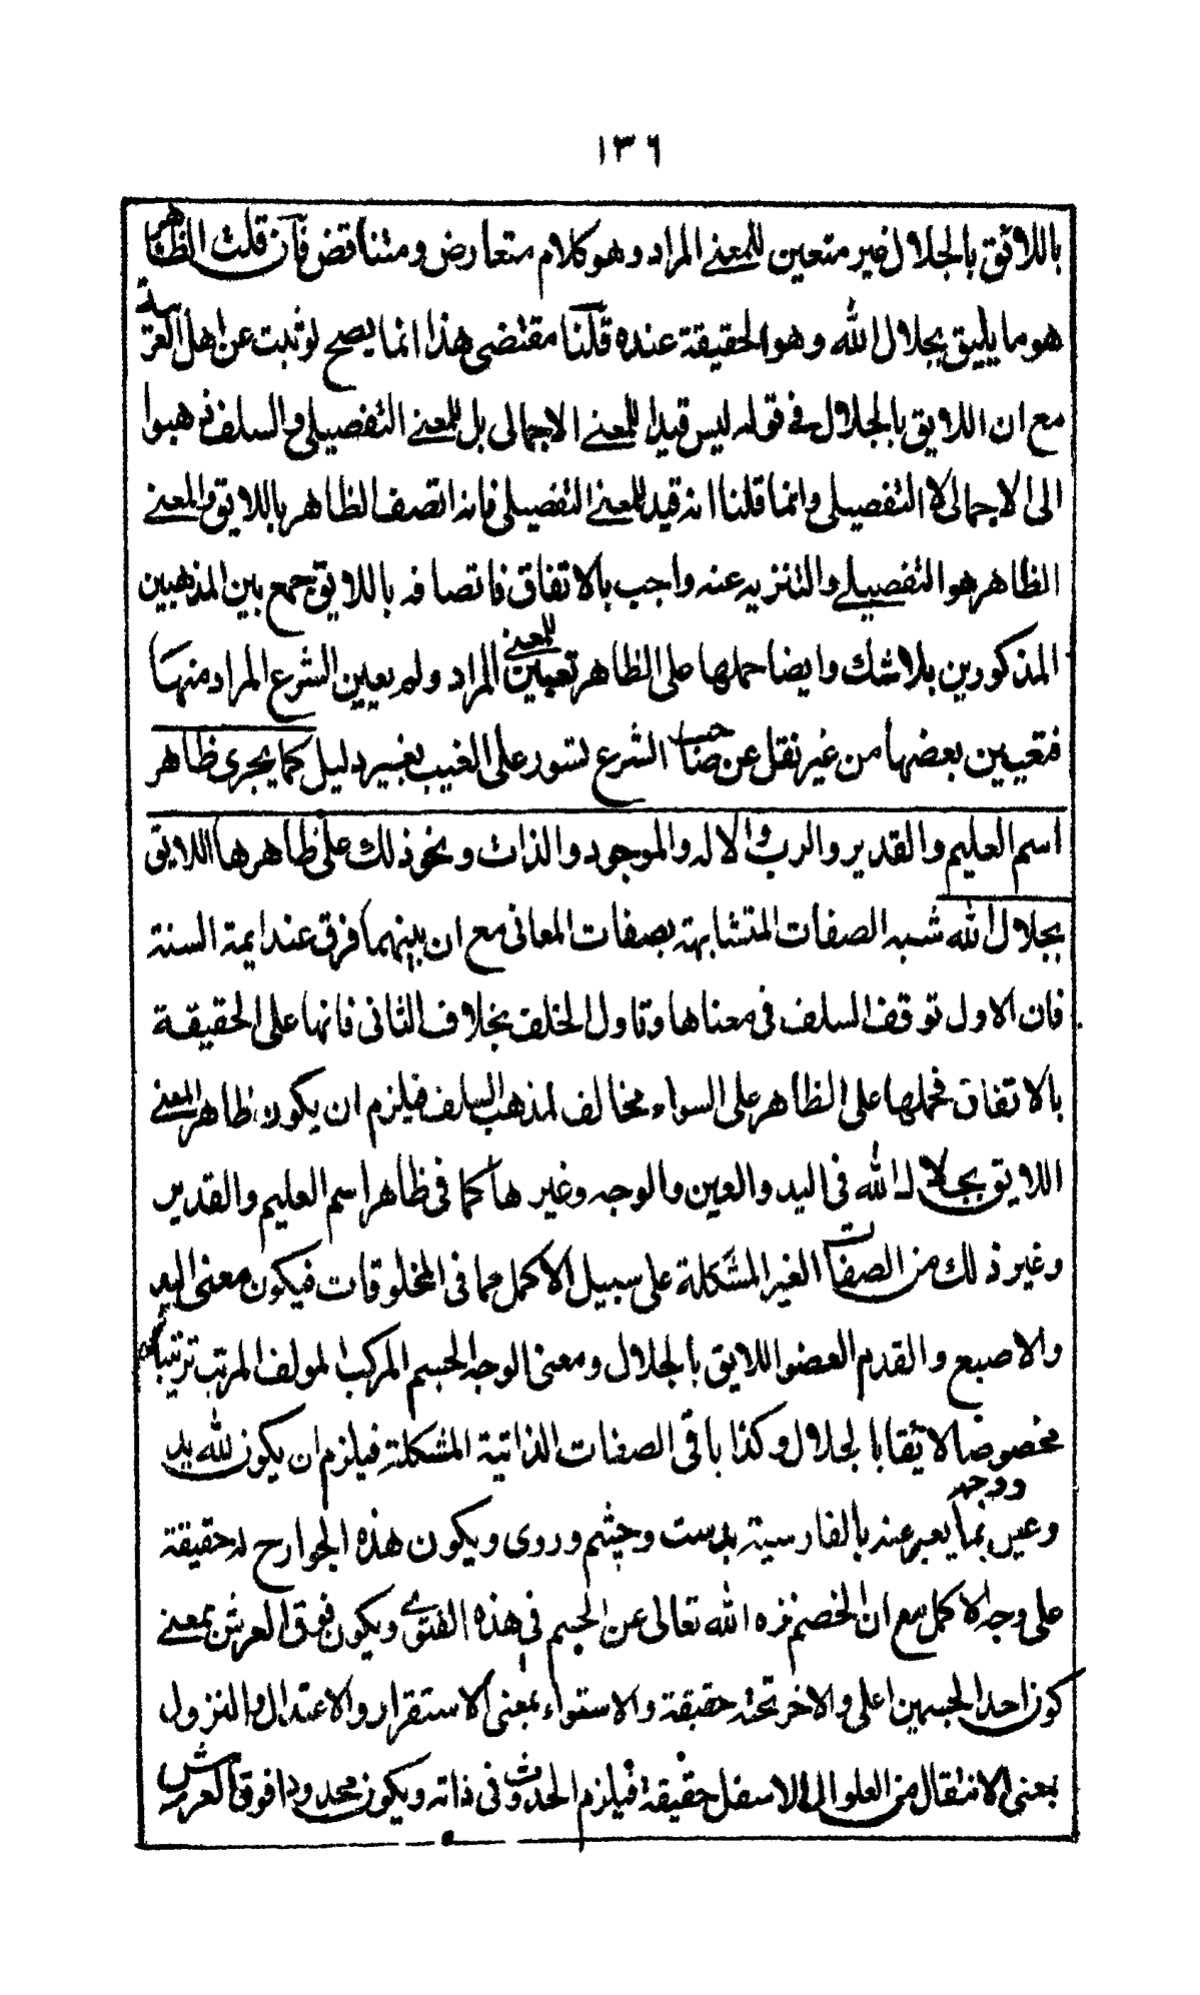 ١٣٦
باللائق بالجلال غير متعين للمعنى المراد وهو كلام متعارض ومتناقض فآن قلت الظاهر
هو ما يليق بجلال الله وهو الحقيقة عنده قلنا مقتضى هذا انما يصح لو ثبت عن اهل العربية
مع ان اللايق بالجلال في قوله ليس قيدا للمعنى الاجمالى بل للمعنى التفصيلى والسلف ذهبوا
الى الاجمالى لا التفصيلى وانما قلنا انه قيد للمعنى التفصيلى فانه اتصف الظاهر باللايق والمعنى
الظاهر هو التفصيلى والتنزيه عنه واجب بالاتفاق فاتصافه باللايق جمع بين المذهبين
المذكورين بلا شك وايضا حملها على الظاهر تعيين للمعنى المراد ولم يعين الشرع المراد منها
فتعيين بعضها من غير نقل عن صاحب الشرع تسور على الغيب بغير دليل كما يجرى ظاهر
اسم العليم والقدير والرب والاله والموجود والذات ونحو ذلك على ظاهرها اللايق
بجلال الله شبه الصفات المتشابهة بصفات المعانى مع ان بينهما فرق عند ايمة السنة
فان الاول توقف السلف فى معناها وتاول الخلف بخلاف الثانى فانها على الحقيقة
بالاتفاق فحملها على الظاهر على السواء مخالف لمذهب السلف فيلزم ان يكون ظاهر المعنى
اللايق بجلال الله فى اليد والعين والوجه وغيرها كما فى ظاهر اسم العليم والقدير
وغير ذلك من الصفات الغير المشكلة على سبيل الاكمل مما فى المخلوقات فيكون معنى اليد
والاصبع والقدم العضو اللايق بالجلال ومعنى الوجه الجسم المركب المولف المرتب ترتيبا
مخصوصا لائقا بالجلال وكذا باقى الصفات الذاتية المشكلة فيلزم ان يكون لله يد
ووجه
وعين بما يعبر عنه بالفارسية بدست وچشم وروى ويكون هذه الجوارح له حقيقة
على وجه الاكمل مع ان الخصم نزه الله تعالى عن الجسم فى هذه الفتوى ويكون فوق العرش بمعنى
كون احد الجسمين اعلى والاخر تحته حقيقة والاستواء بمعنى الاستقرار والاعتدال والنزول
بمعنى الانتقال من العلو الى الاسفل حقيقة فيلزم الحدوث فى ذاته ويكون محدودا فوق العرش